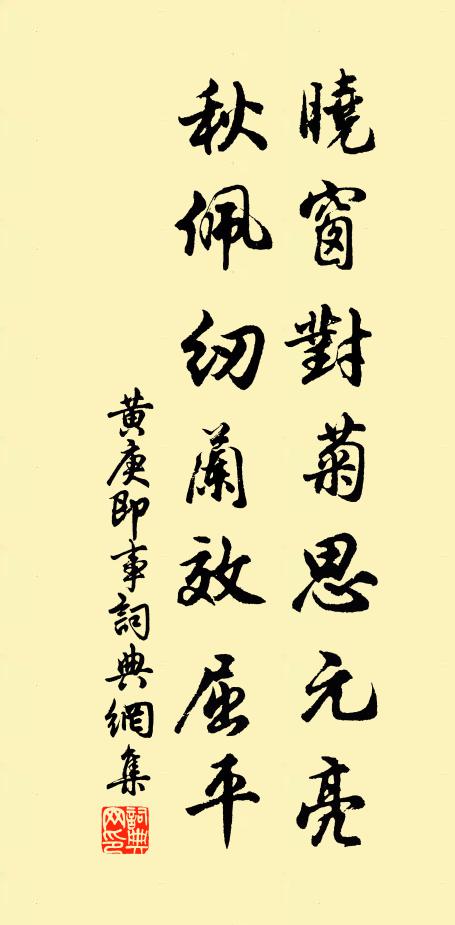 曉窗對菊思元亮
秋佩紉蘭效屈平
黃庚即事詞典網集
詞典網印